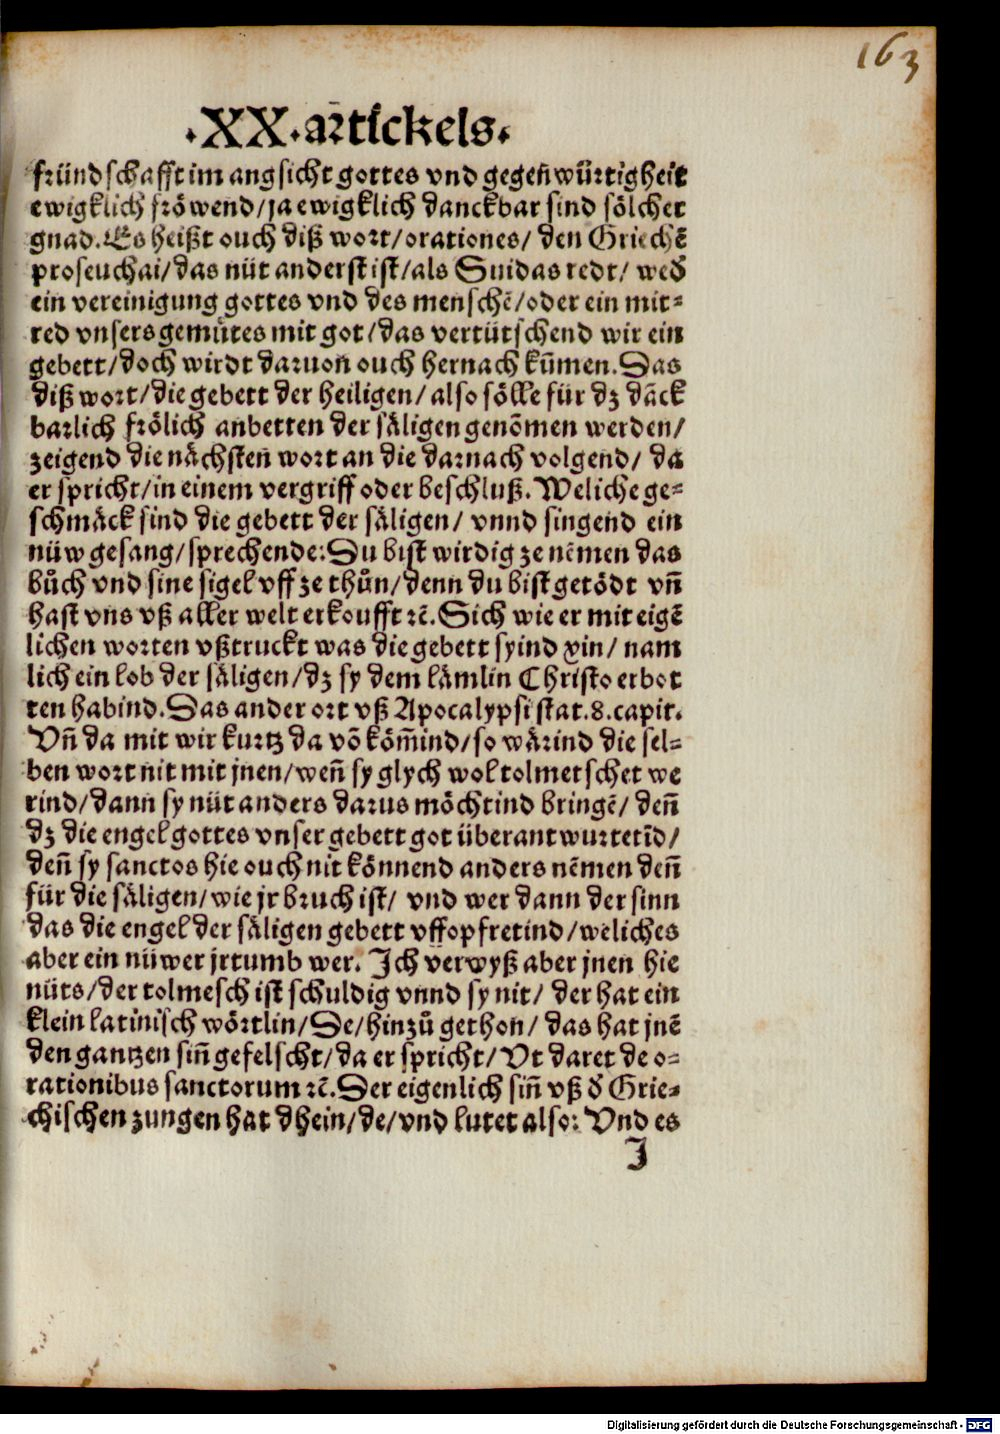 163
.XX.artickels.
fründschafft im angsicht gottes vnd gegeñwürtigheit
ewigklich fröwend/ja ewigklich danckbar sind sölcher
gnad. Es heißt ouch diß wort/orationes/ den Griechē
proseuchai/das nüt anderst ist/als Suidas redt/ wed̕
ein vereinigung gottes vnd des menschē/oder ein mit⸗
red vnsers gemůtes mit got/das vertütschend wir ein
gebett/doch wirdt daruon ouch hernach kūmen. Das
diß wort/die gebett der heiligen/ also sölle für dz dāck
barlich frölich anbetten der säligen genōmen werden/
zeigend die nächsten wort an die darnach volgend/ da
er spricht/in einem vergriff oder beschluß. Weliche ge⸗
schmäck sind die gebett der säligen/ vnnd singend ein
nüw gesang/sprechende: Du bist wirdig ze nēmen das
bůch vnd sine sigel vff ze thůn/denn du bist getödt vñ
hast vns vß aller welt erkoufft ꝛč. Sich wie er mit eigē
lichen worten vßtruckt was die gebett syind xin/ nam
lich ein lob der säligen/dz sy dem lämlin Christo erbot
ten habind. Das ander ort vß Apocalypsi stat.8.capit.
Vñ da mit wir kurtz da vō köm̄ind/so wärind die sel⸗
ben wort nit mit jnen/weñ sy glych wol tolmetschet we
rind/dann sy nüt anders darus möchtind bringē/ deñ
dz die engel gottes vnser gebett got überantwurtetīd/
deñ sy sanctos hie ouch nit könnend anders nēmen deñ
für die säligen/wie jr bruch ist/ vnd wer dann der sinn
das die engel der säligen gebett vffopfretind/weliches
aber ein nüwer jrtumb wer. Ich verwyß aber jnen hie
nüts/der tolmesch ist schuldig vnnd sy nit/ der hat ein
klein latinisch wörtlin/De/hinzů gethon/ das hat jnē
den gantzen siñ gefelscht/da er spricht/ Vt daret de o⸗
rationibus sanctorum ꝛč. Der eigenlich siñ vß d̕ Grie⸗
chischen zungen hat dhein/de/vnd lutet also: Vnd es
J
Digitalisierung gefördert durch die Deutsche Forschungsgemeinschaft - DFG